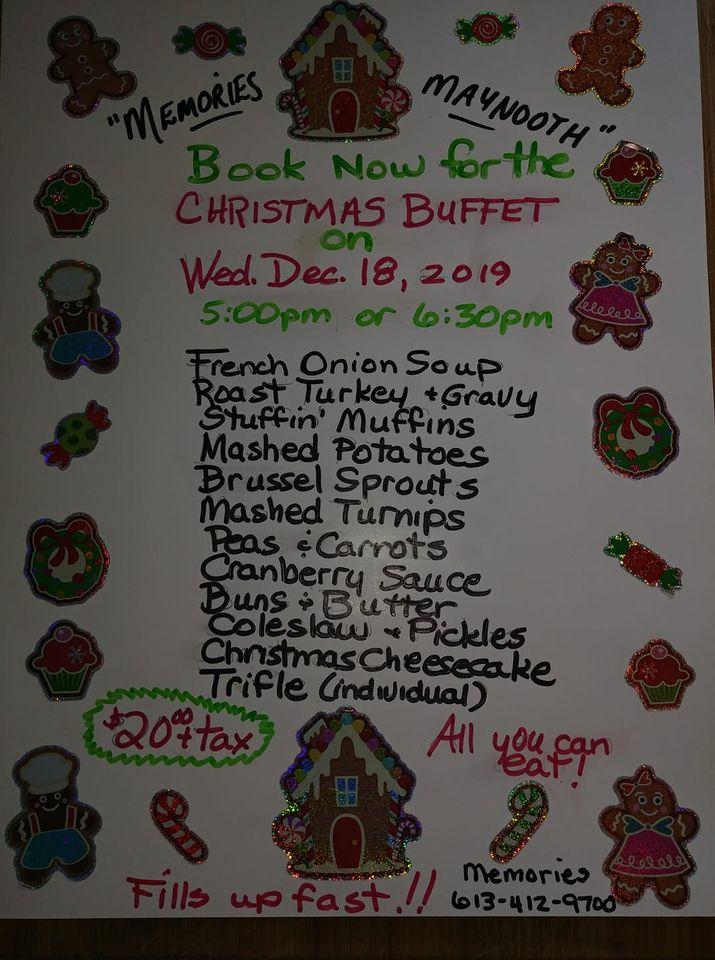 "MEMORIES MAYNOOTH"
Book Now for the
CHRISTMAS BUFFET
on
Wed. Dec. 18, 2019
5:00pm or 6:30pm
French Onion Soup
Roast Turkey + Gravy
Stuffin' Muffins
Mashed Potatoes
Brussel Sprouts
Mashed Turnips
Peas & Carrots
Cranberry Sauce
Buns + Butter
Coleslaw + Pickles
Christmas Cheesecake
Trifle (individual)
$20.00 + tax
All you can
eat!
Fills up fast!!
Memories
613-412-9700